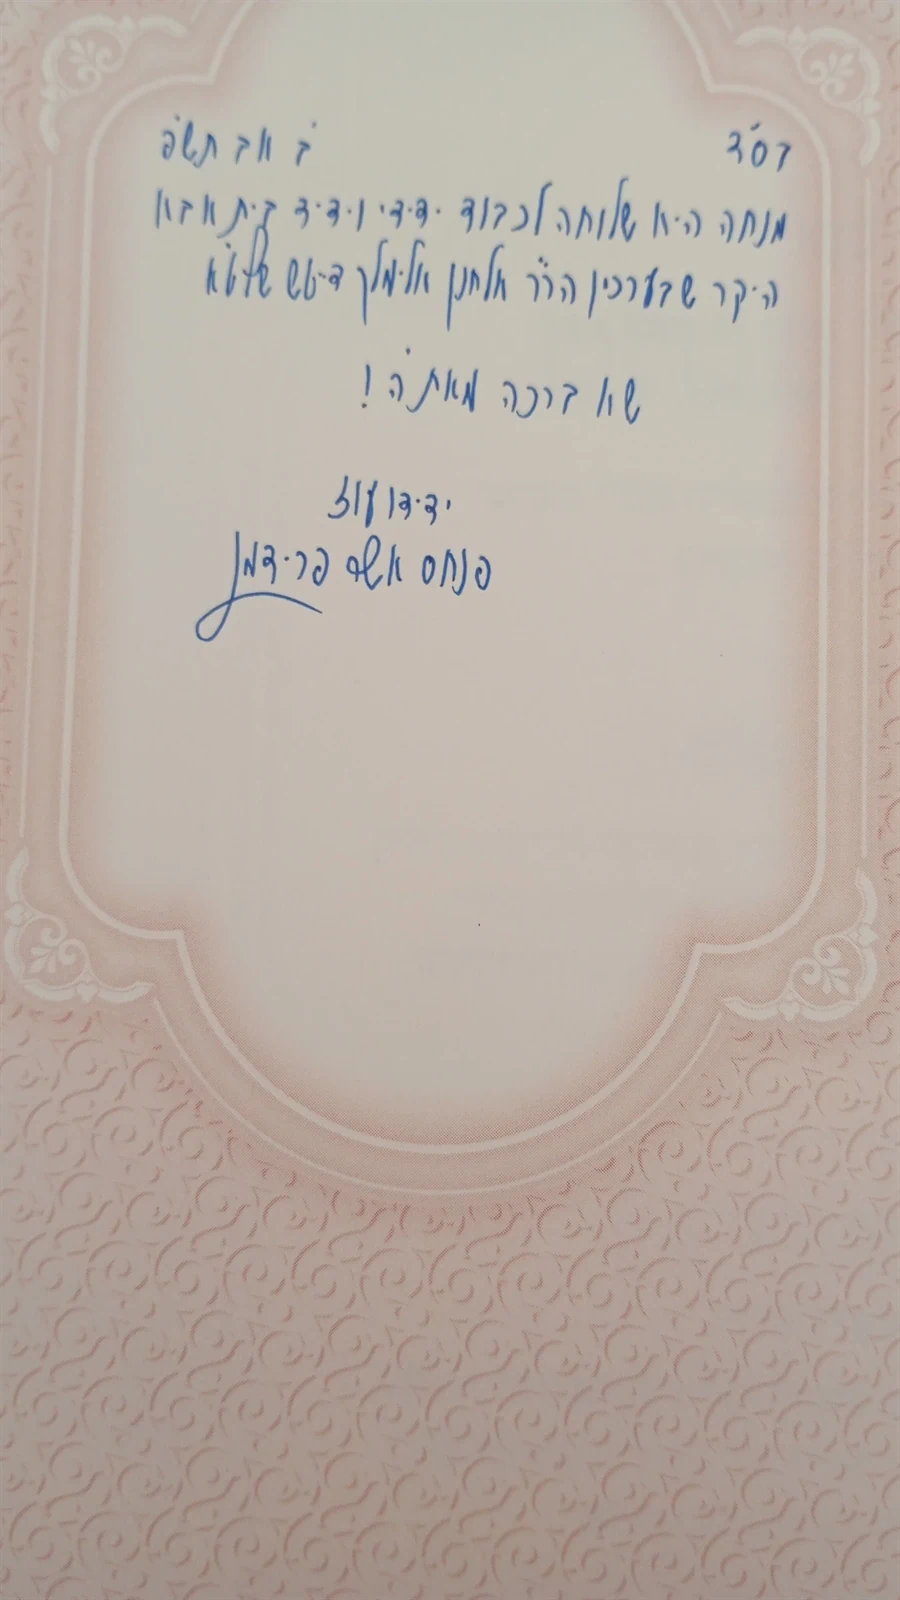 בס"ד ב' אב תש"פ
מנחה היא שלוחה לכבוד ידידי וידיד בית אבא
היקר שבערכין הר"ר אלחנן אלימלך דיטש שליט"א
שא ברכה מאת ה'!
ידידו עוז
פנחס אשר פרידמן